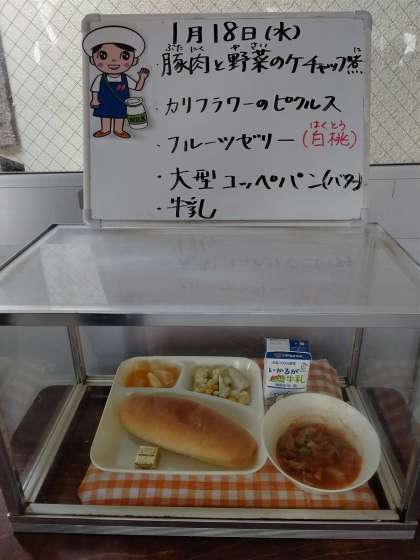 1月18日(水)
・豚肉と野菜のケチャップ煮
ぶたにく やさい に
・カリフラワーのピクルス
・フルーツゼリー(白桃)
はくとう
・大型コッペパン(バター)
・牛乳
MILK
いかるが
牛乳